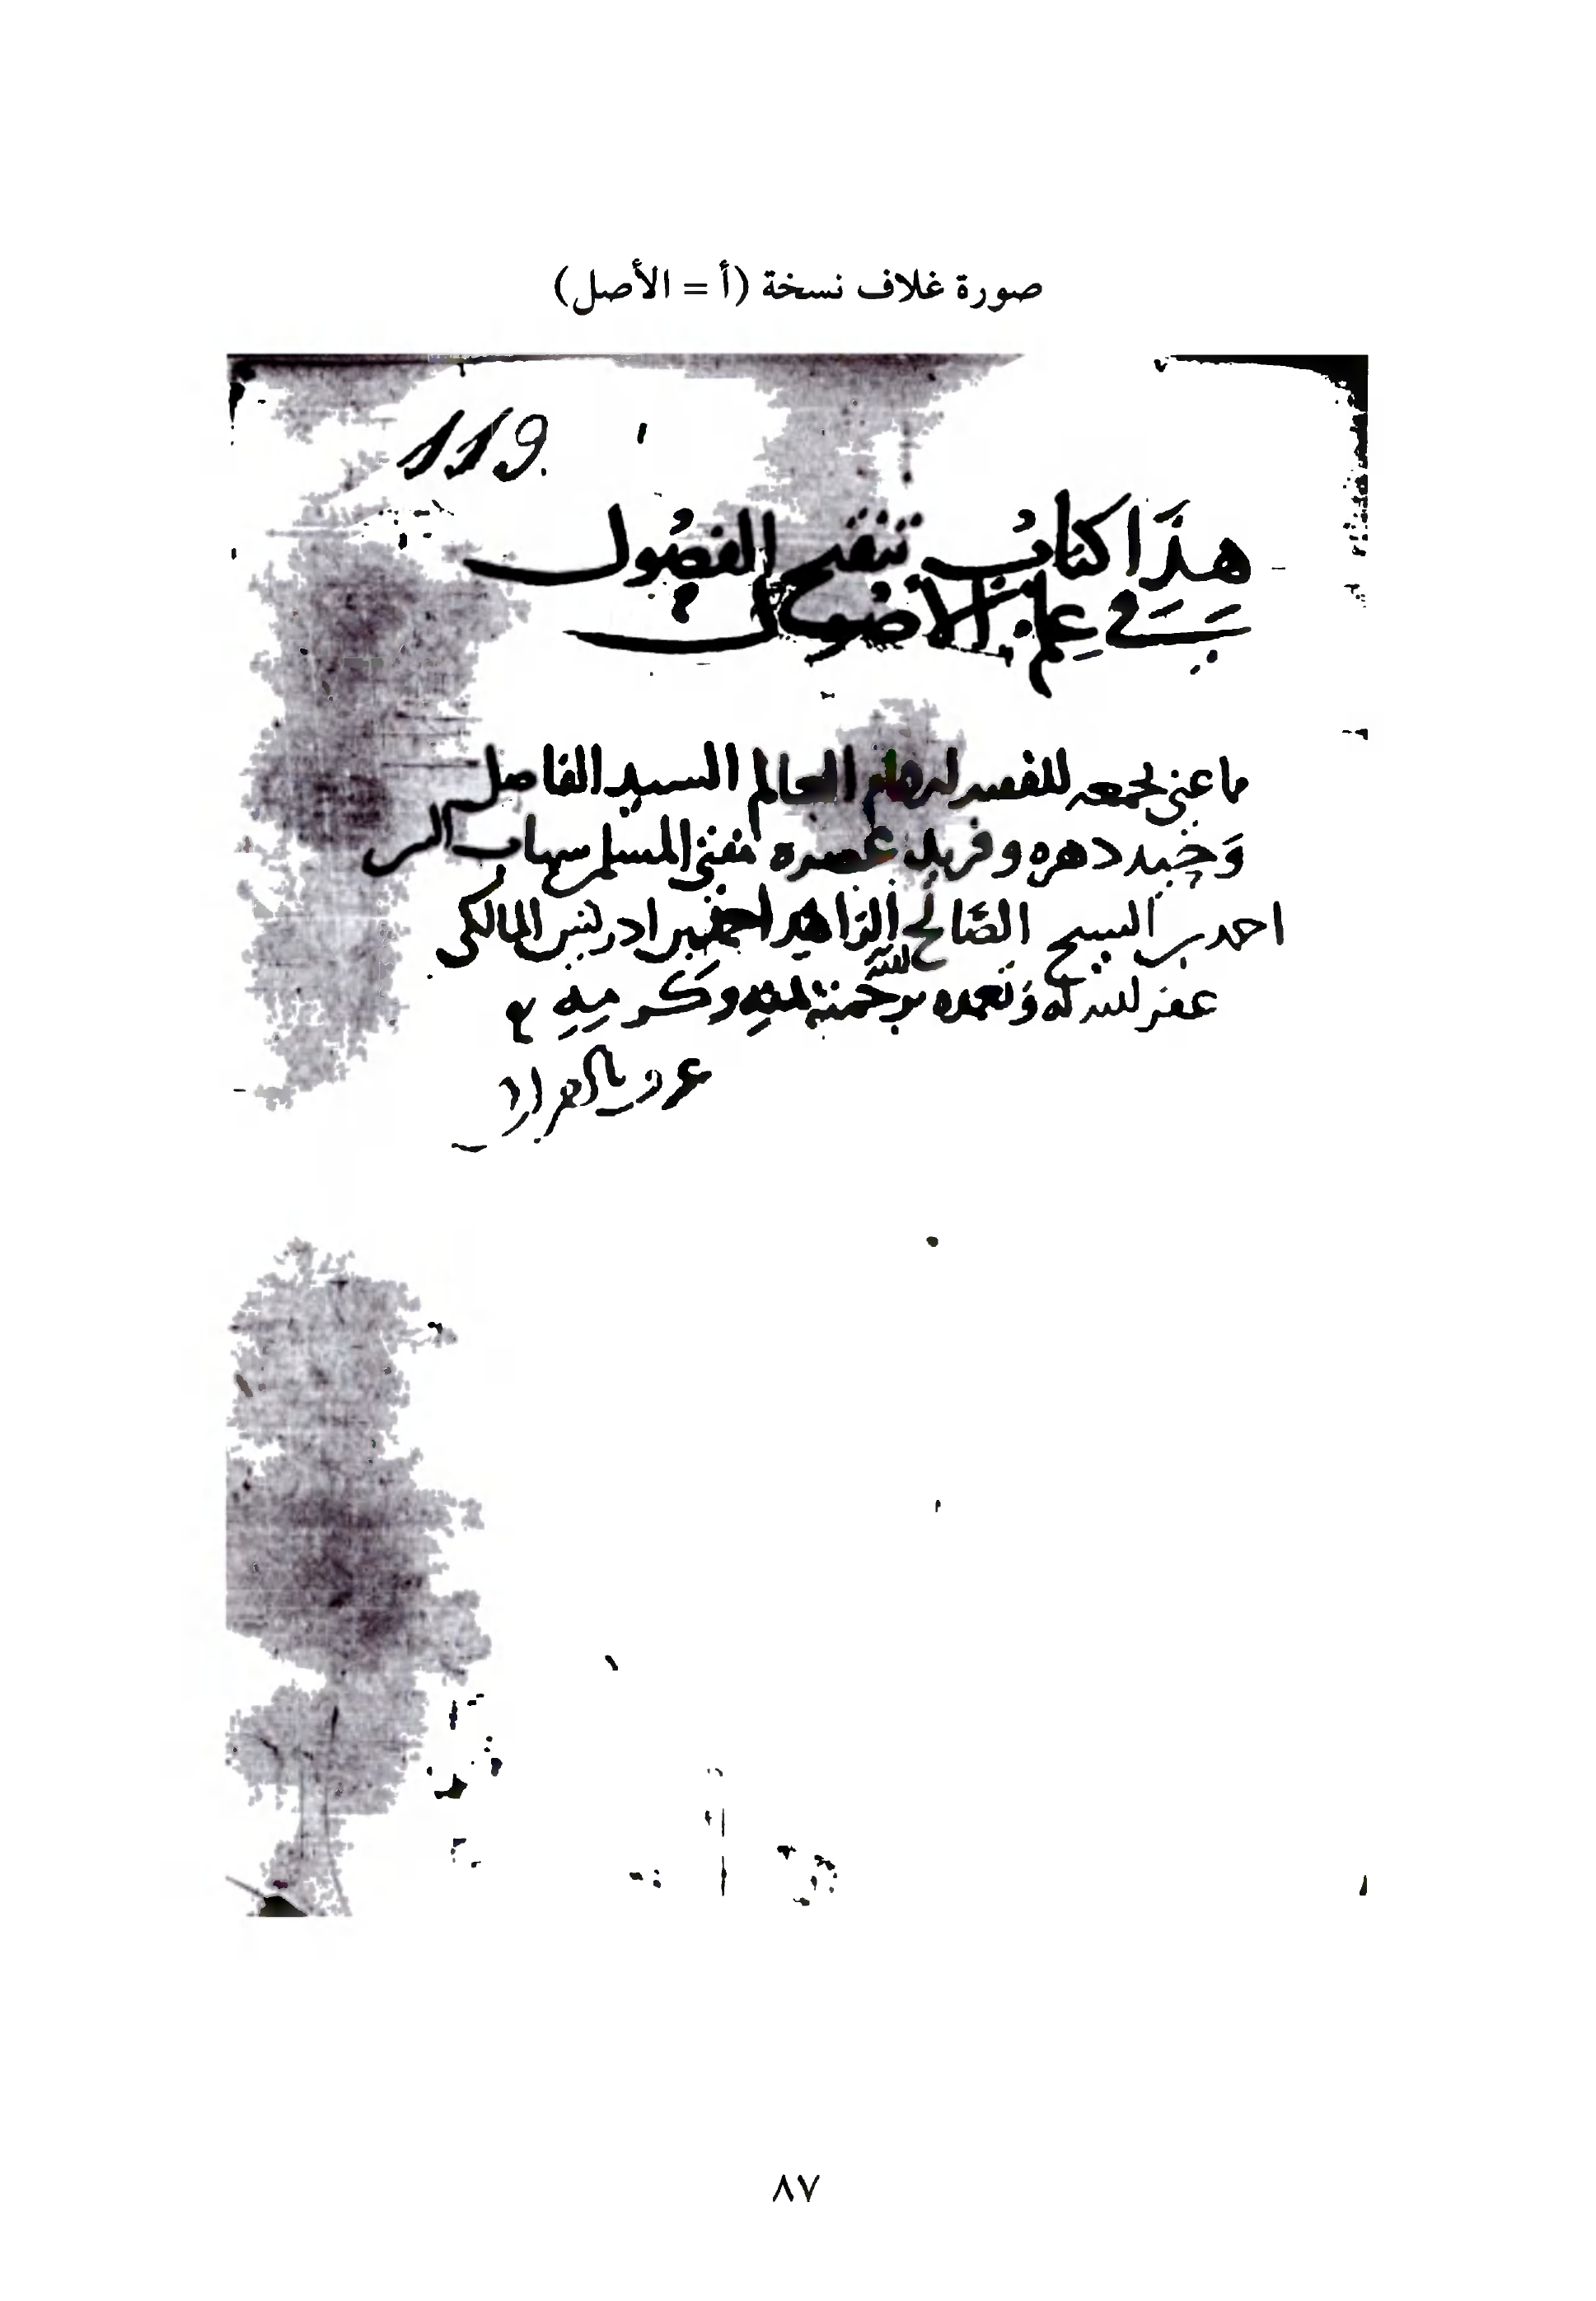 صورة غلاف نسخة (أ = الأصل)
119.
هذا كتاب تنقيح الفصول
في علم الاصول
ما عنى بجمعه لنفسه العالم السيد الفاضل
وحيد دهره وفريد عصره مفتى المسلمين شهاب الدين
احمد بن الشيخ الصالح الزاهد ادريس المالكى
غفر الله له وتغمده برحمته منه وكرمه
٨٧